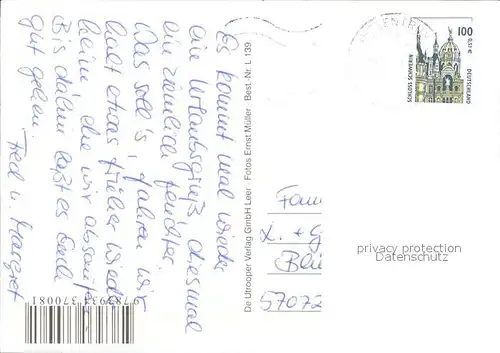 Es kommt mal wieder
ein Urlaubsgruß, diesmal
ein ziemlich feuchter.
Was soll's, fahren wir
halt etwas früher wieder
heim ehe wir absaufen.
Bis dahin laßt es Euch
gut gehen.
Fred u. Margret
9 789313 370081
De Utrooper Verlag GmbH Leer · Fotos Ernst Müller · Best. Nr. L 139
100
0,51 €
SCHLOSS SCHWERIN
DEUTSCHLAND
Fam
L. + G
57072
privacy protection
Datenschutz